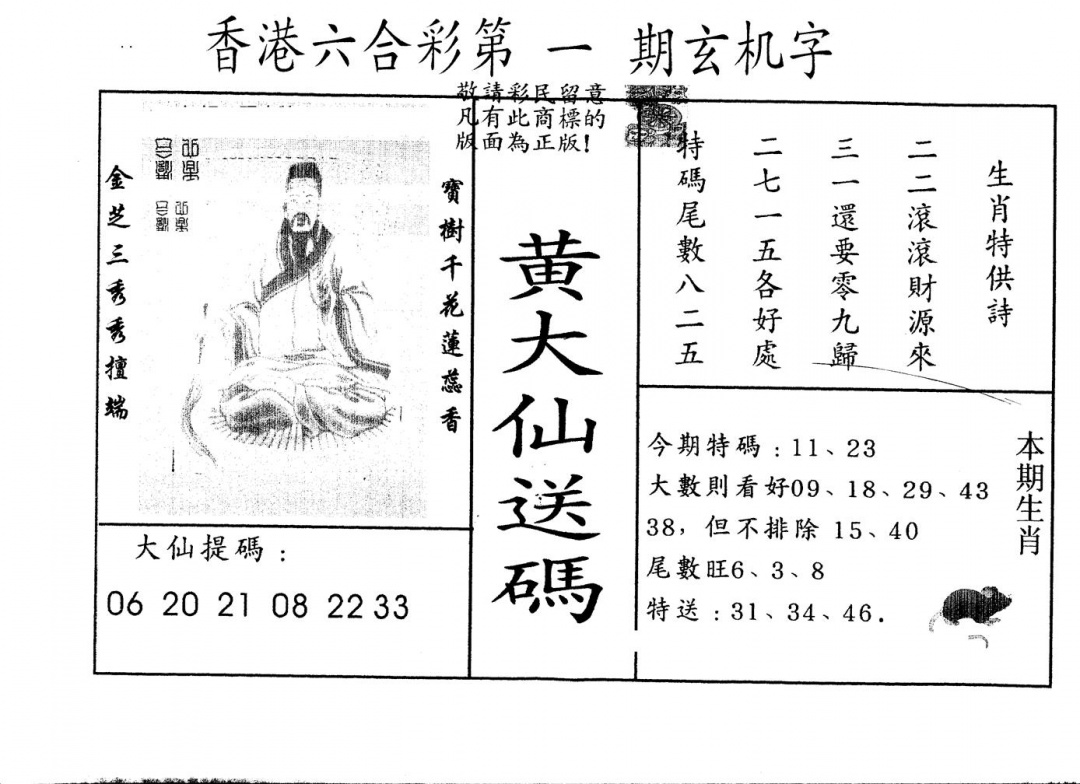 香港六合彩第 一 期玄机字
敬請彩民留意
凡有此商標的
版面為正版!
金芝三秀秀擅端
寶樹千花蓮蕊香
黄大仙送碼
生肖特供詩
二二滾滾財源來
三一還要零九歸
二七一五各好處
特碼尾數八二五
大仙提碼:
06 20 21 08 22 33
本期生肖
今期特碼:11、23
大數則看好09、18、29、43
38,但不排除 15、40
尾數旺6、3、8
特送:31、34、46.